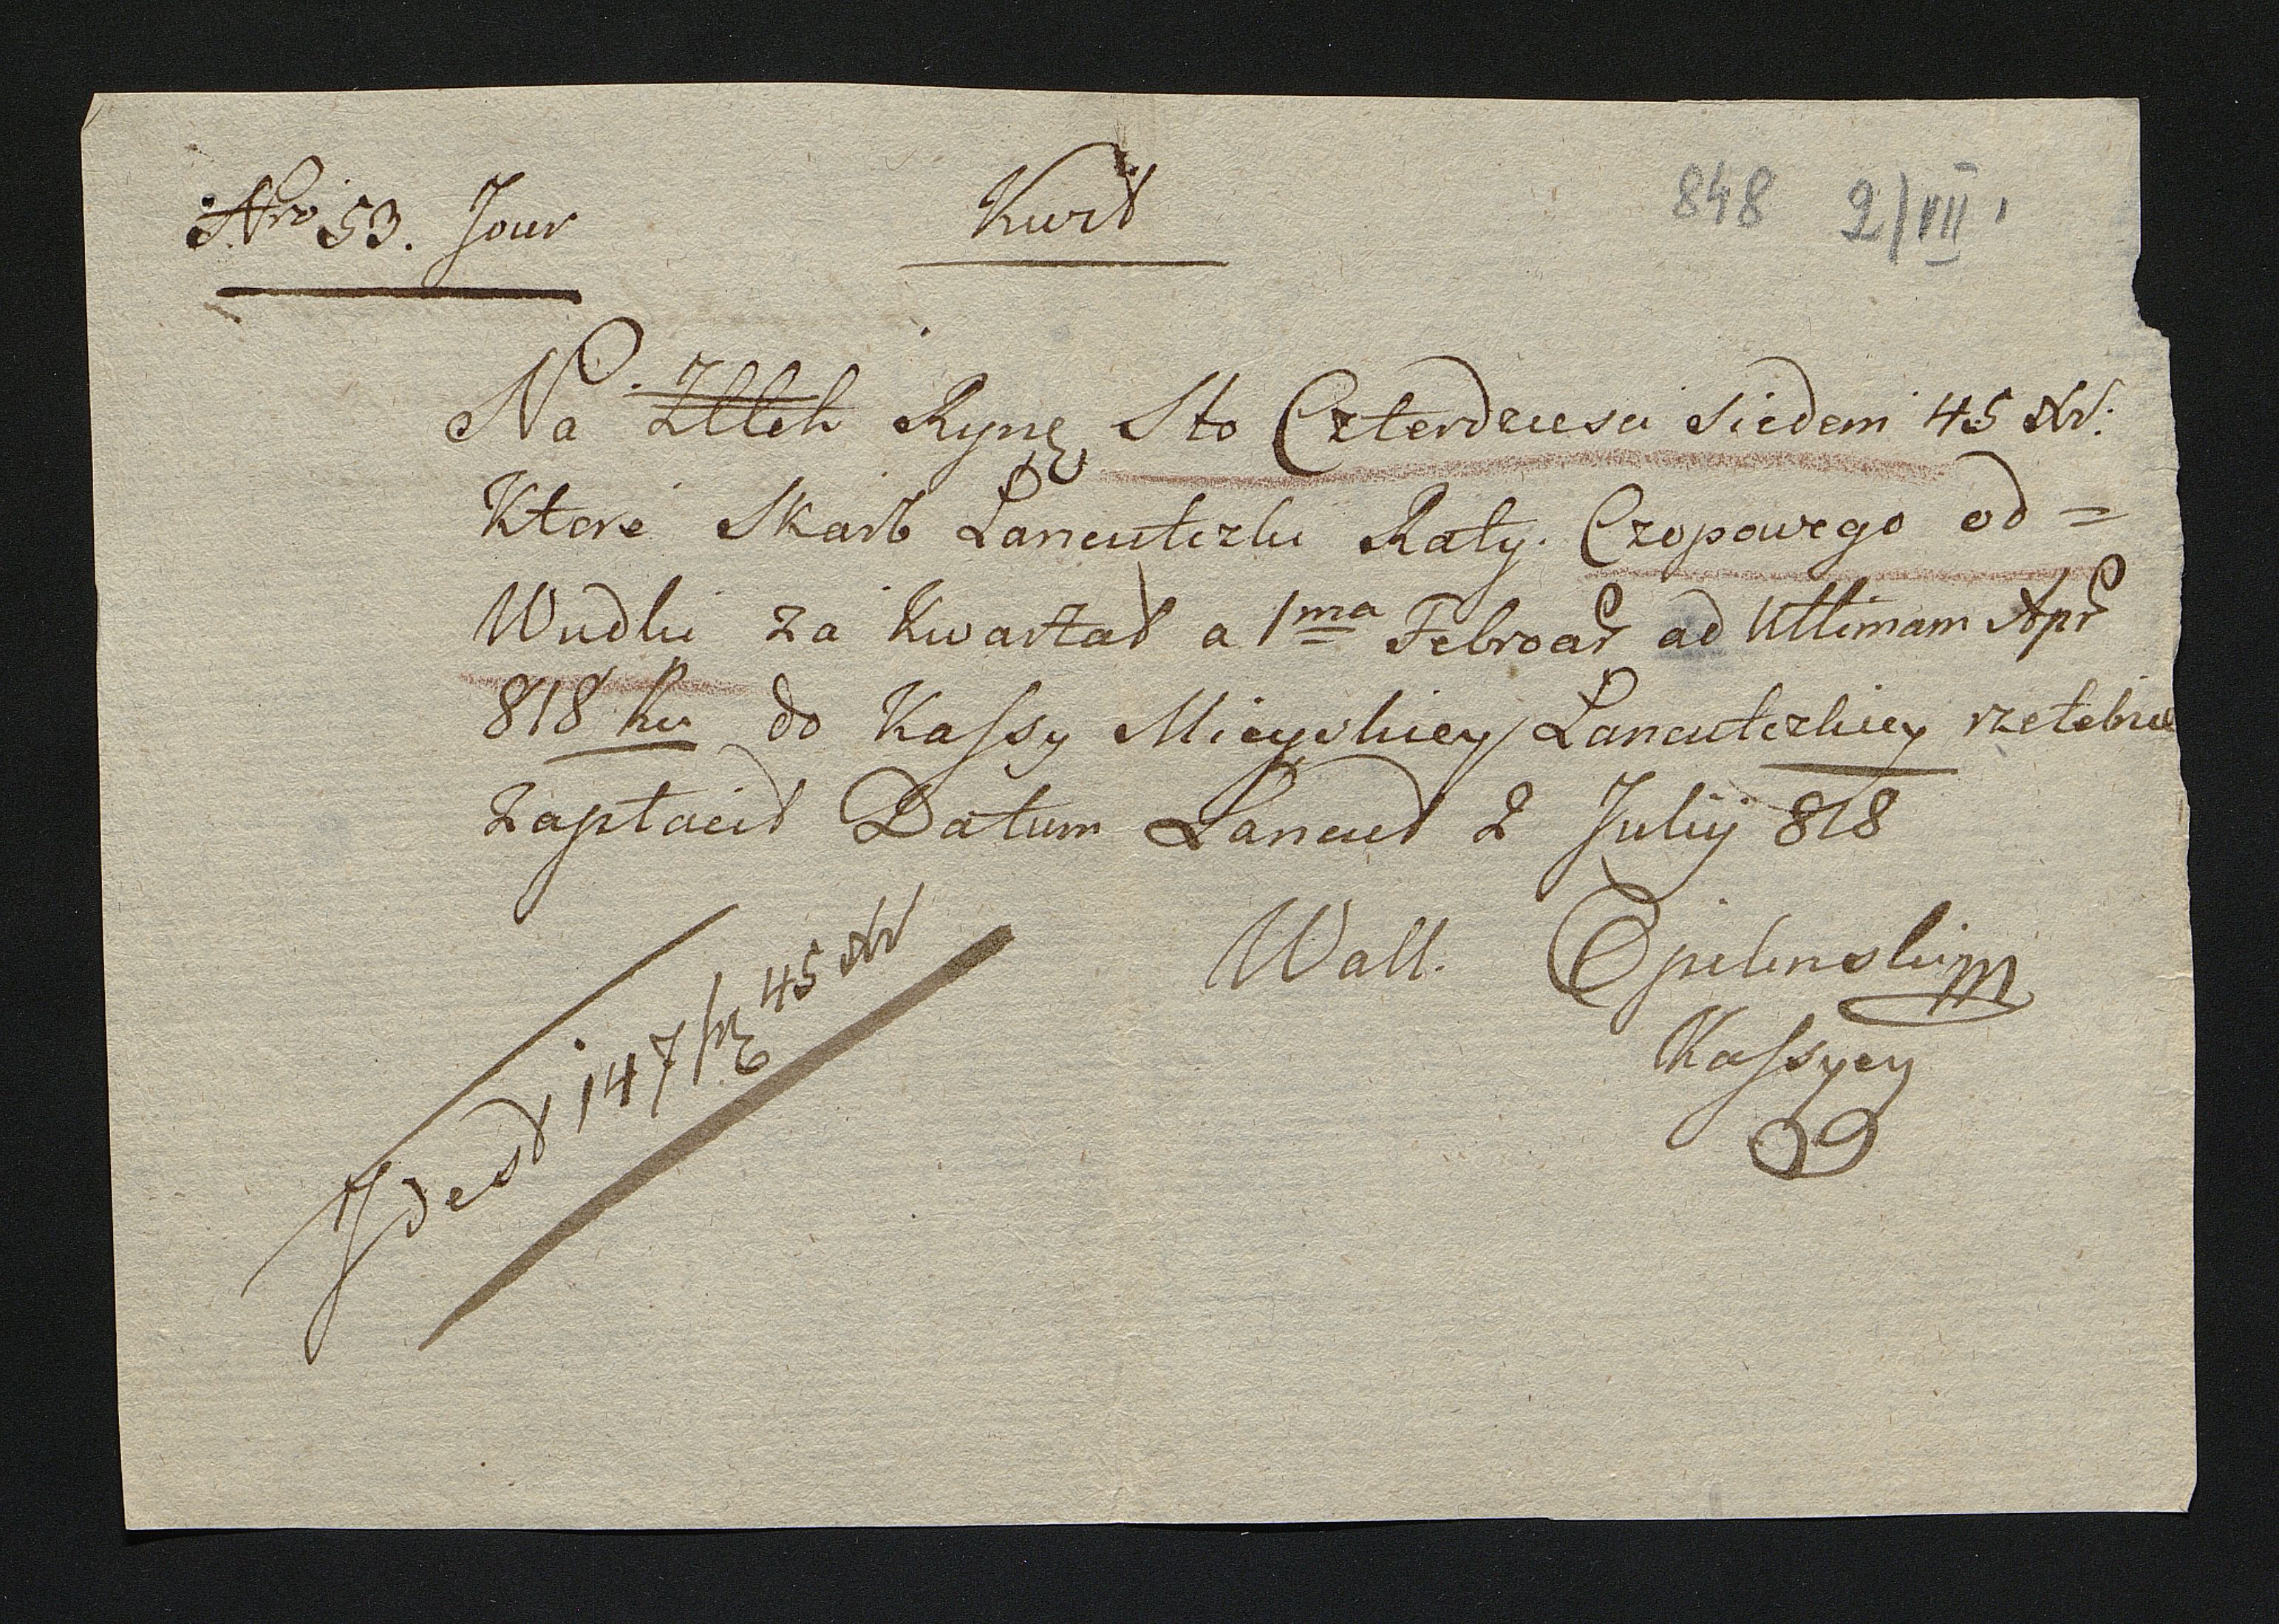 Nro 53. Jour
Kwit
848 2/VII.
Na Zllch Rynę Sto Czterdziesci Siedem 45 Xr.
Ktore Skarb Lancutczki Raty. Czopowego od =
Wudki za Kwartał a 1ma Februar ad Ultimam Apr
818 Ru do Kassy Mieyskiey Lancutczkiey rzetelnie
zapłacił Datum Lancut 2 Julij 818
Wall. Opielinski
Kassyer
Idest 147 fr 45 Xr